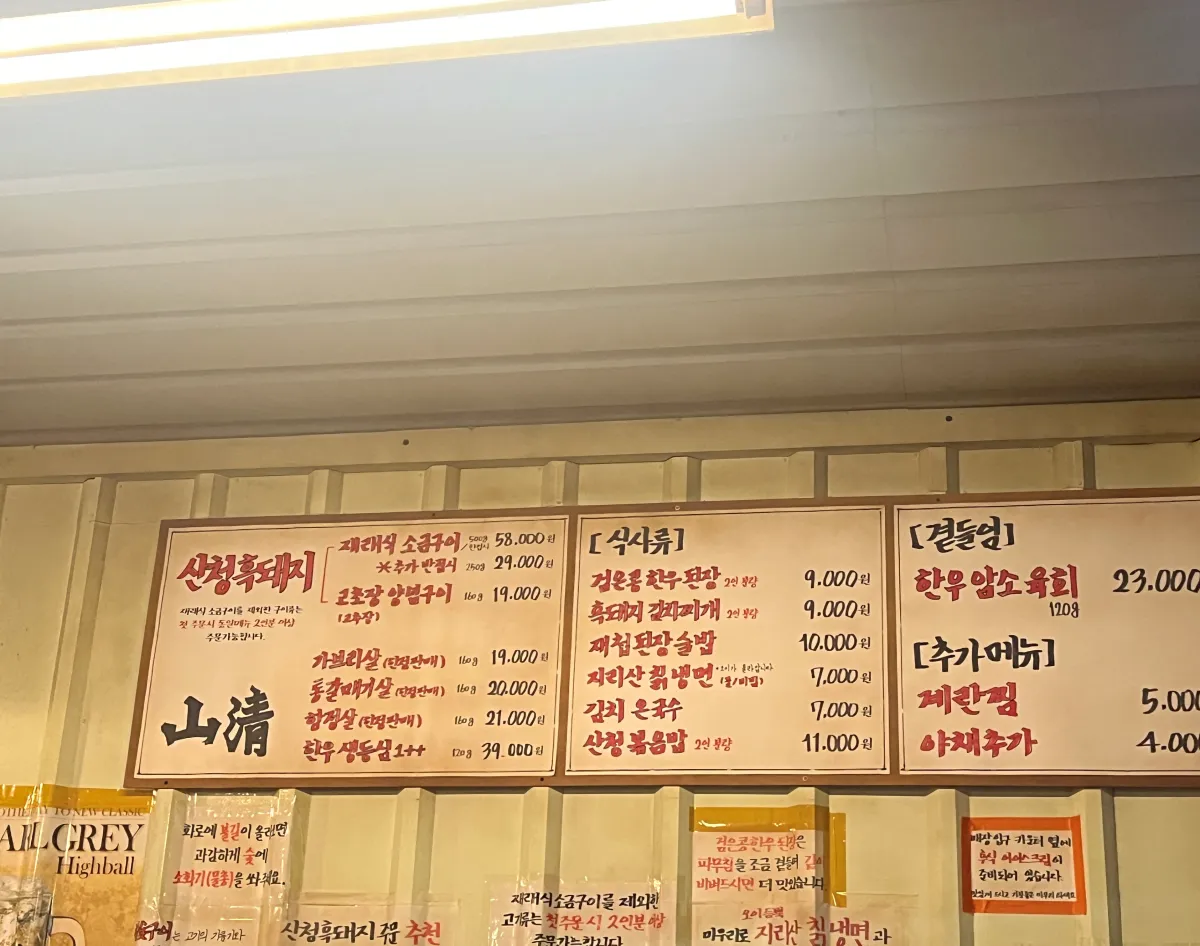 산청흑돼지
재래식 소금구이를 제외한 구이류는
첫 주문시 동일메뉴 2인분 이상
주문가능합니다.
山清
재래식 소금구이 500g/한접시 58.000원
※추가 반접시 250g 29.000원
고초장 양념구이 160g 19.000원
(고추장)
가브리살 (한정판매) 160g 19.000원
통갈매기살 (한정판매) 160g 20.000원
항정살 (한정판매) 160g 21.000원
한우 생등심 1++ 120g 39.000원
[식사류]
검은콩 한우 된장 2인 분량 9.000원
흑돼지 김치찌개 2인 분량 9.000원
재첩 된장 술밥 10.000원
지리산 칡 냉면 (물/비빔) 7.000원
김치 온국수 7.000원
산청 볶음밥 2인 분량 11.000원
[곁들임]
한우 암소 육회 23.000
120g
[추가메뉴]
계란찜 5.00
야채추가 4.00
TO NEW CLASSIC
GREY
Highball
화로에 불길이 올라오면
과감하게 숯에
소화기(물총)을 쏴줘요.
산청흑돼지 주문 추천
재래식 소금구이를 제외한
고기류는 첫 주문 시 2인분 이상
주문가능합니다.
검은콩한우 된장은
파무침을 조금 곁들여
비벼드시면 더 맛있습니다
마무리로 지리산 칡냉면과
매장입구 카운터 옆에
후식 아이스크림이
준비되어 있습니다.